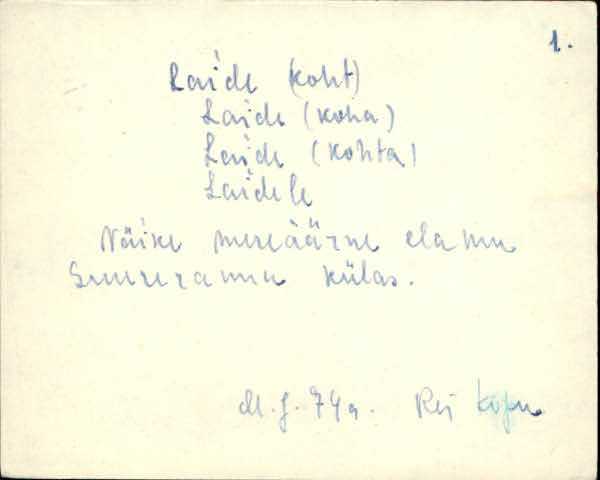 1.
Laide (koht)
Laide (koha)
Laide (kohta)
Laidele
Väike mereäärne elamu
Suureranna külas.
M. J. 74a. Rei Kõpu